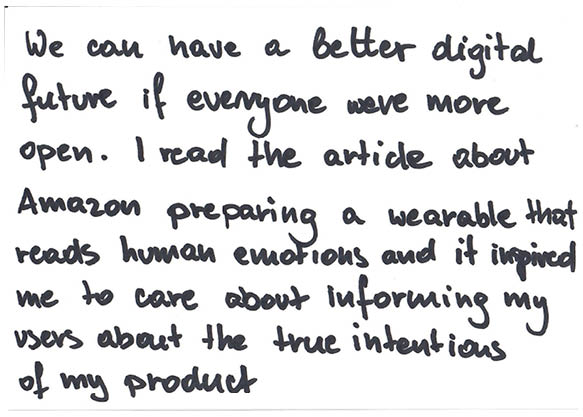 We can have a better digital
future if everyone were more
open. I read the article about
Amazon preparing a wearable that
reads human emotions and it inspired
me to care about informing my
users about the true intentions
of my product